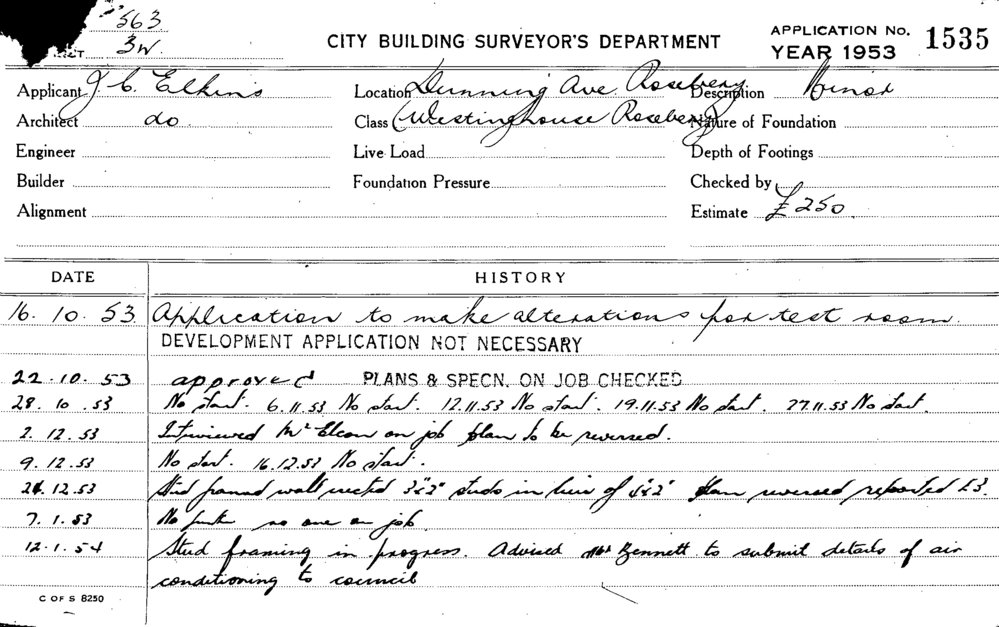 563
3W.
CITY BUILDING SURVEYOR'S DEPARTMENT
APPLICATION No. 1535
YEAR 1953
Applicant J. C. Elkins Location Dunning Ave Rosebery Description Minor
Architect do Class (Westinghouse Rosebery) Nature of Foundation
Engineer Live Load Depth of Footings
Builder Foundation Pressure Checked by
Alignment Estimate £250
DATE HISTORY
16. 10. 53 Application to make alterations for test room.
DEVELOPMENT APPLICATION NOT NECESSARY
22.10.53 approved PLANS & SPECN. ON JOB CHECKED
28.10.53 No start. 6.11.53 No start. 12.11.53 No start. 19.11.53 No start. 27.11.53 No start.
2.12.53 Interviewed Mr on job plan to be reversed.
9.12.53 No start. 16.12.53 No start.
12.53 Stud framed wall erected 3"x2" studs in lieu of 4"x2" plan reversed reported
7.1.53 No no one on job.
12.1.54 Stud framing in progress. Advised Mr Bennett to submit details of air
conditioning to council
C OF S 8250